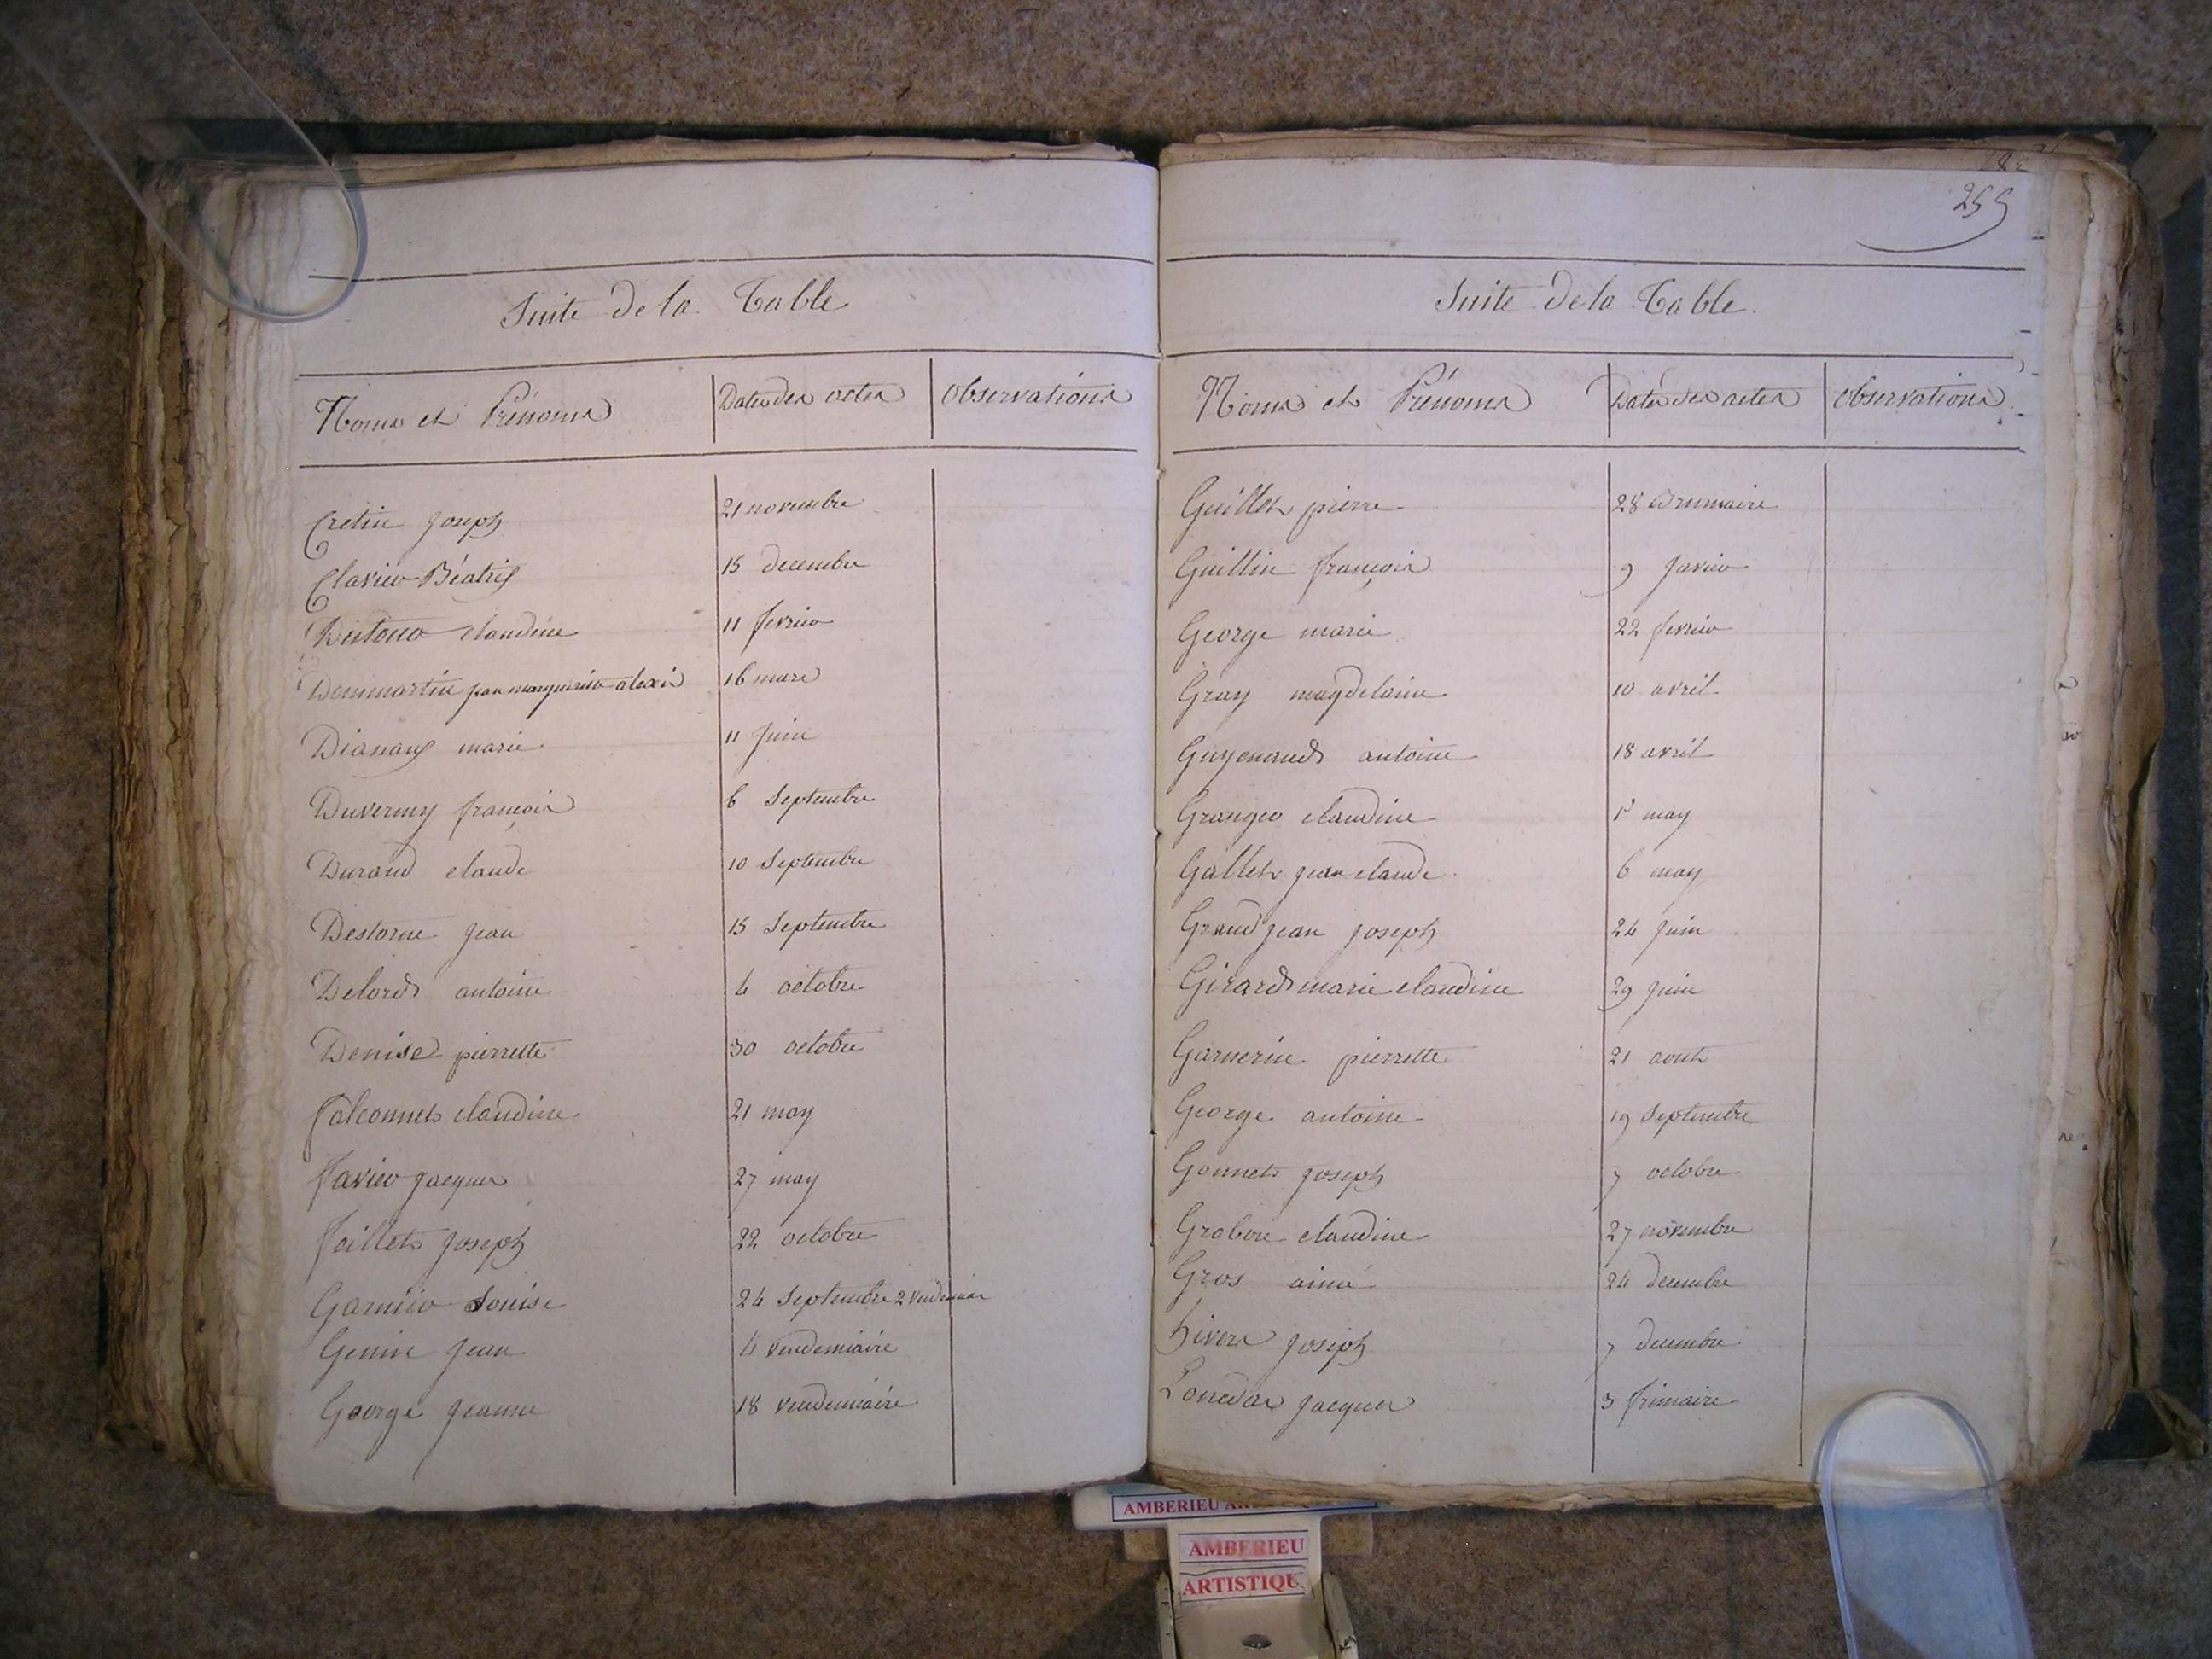 Suite de la Table
Noms et Prénoms | Dates des actes | Observations
Cretin joseph | 21 novembre
Clavier Béatrix | 15 decembre
claudine | 11 fevrier
Dommartin jean marguerite alexis | 16 mars
Dianans marie | 11 juin
Duverny françois | 6 Septembre
Durand claude | 10 Septembre
Destorne jean | 15 Septembre
Delord antoine | 4 octobre
Denise pierrette | 30 octobre
falconnet claudine | 21 may
favier jacques | 27 may
faillet joseph | 22 octobre
Garnier Louise | 24 Septembre 2 Vendemiaire
Genin jean | 4 vendemiaire
George jeanne | 18 vendemiaire
255
Suite de la Table
Noms et Prénoms | Dates des actes | Observations
Guillot pierre | 28 Brumaire
Guillin françois | 9 janvier
George marie | 22 fevrier
Gray magdelaine | 10 avril
Guyenard antoine | 18 avril
Granger claudine | 1er may
Gallet jean claude | 6 may
Grandjean joseph | 24 juin
Girard marie claudine | 29 juin
Garnerin pierrette | 21 aout
George antoine | 19 Septembre
Gonnet joseph | 7 octobre
Grobon claudine | 27 novembre
Gros aimé | 24 decembre
hivers joseph | 7 decembre
jacques | 3 frimaire
AMBERIEU
AMBERIEU
ARTISTIQU